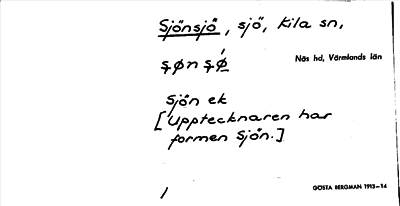 Sjönsjö, sjö, Kila sn,
şøn şǿ
Näs hd, Värmlands län
Sjön ek
[Upptecknaren har
formen Sjön.]
/
GÖSTA BERGMAN 1913–14